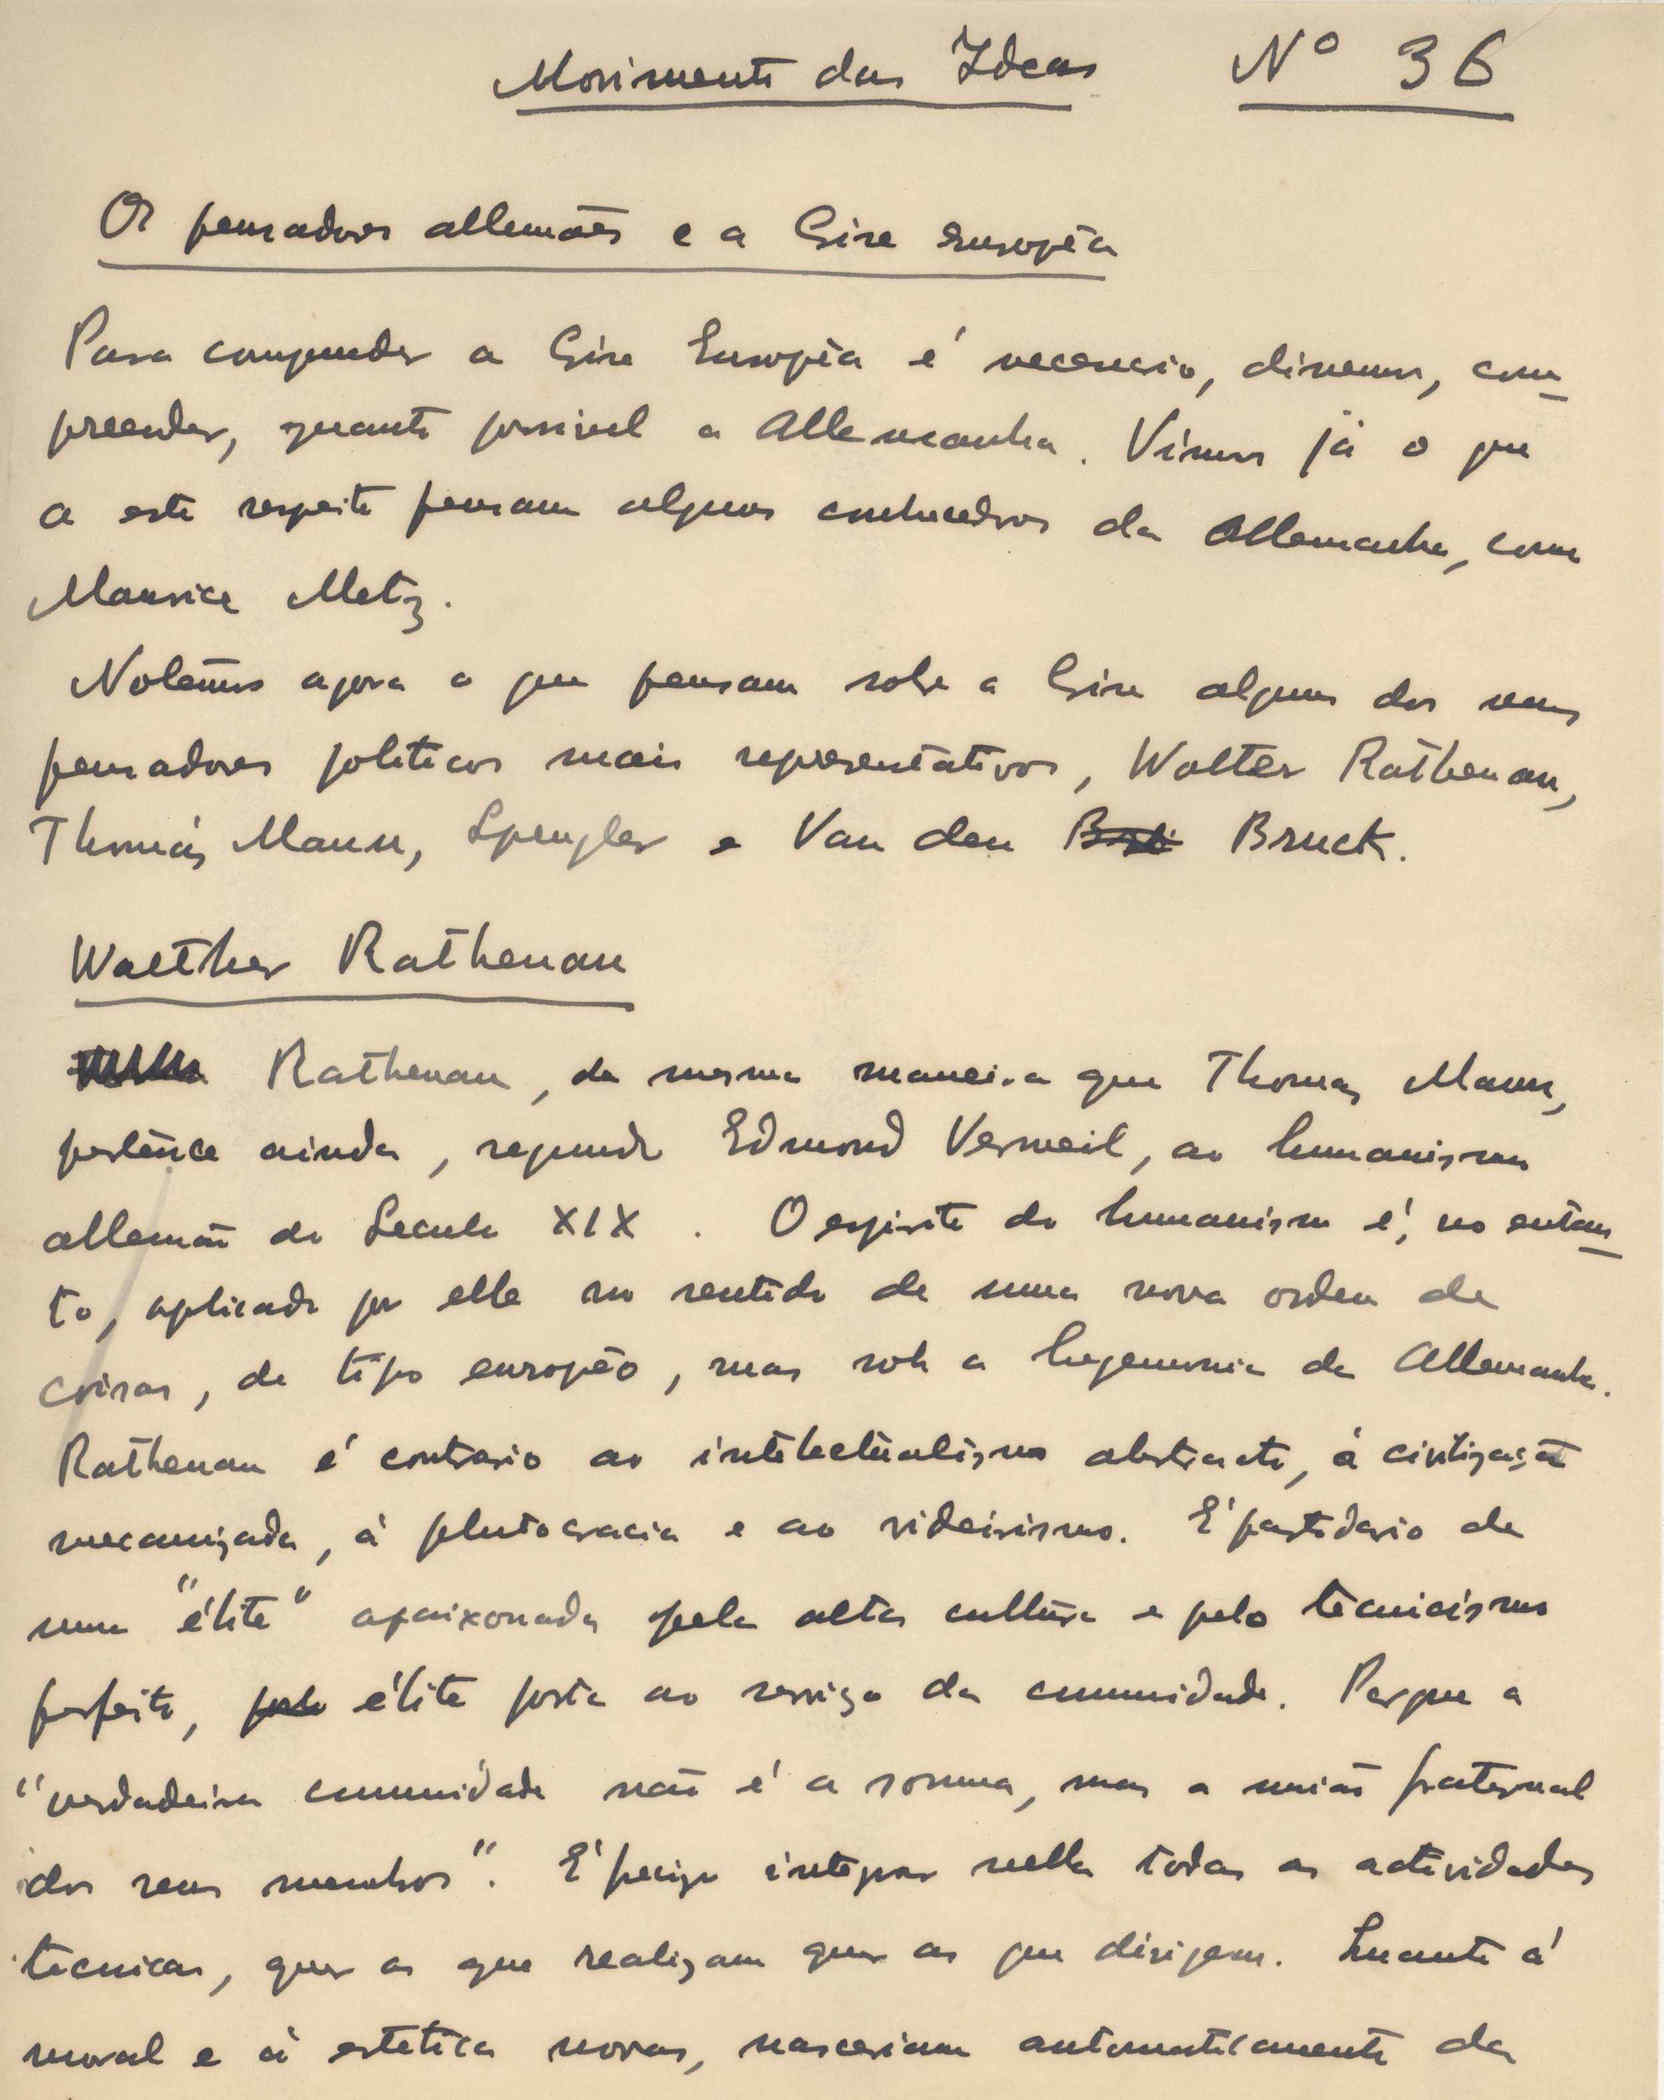 Movimento das Ideas Nº 36
Os pensadores allemães e a Crise européa
Para compreender a Crise Européa é necessario, dissemos, com-
preender, quanto possivel a Allemanha. Vimos já o que
a este respeito pensam alguns conhecedores da Allemanha, como
Maurice Metz.
Notêmos agora o que pensam sobre a Crise alguns dos seus
pensadores politicos mais representativos, Walter Rathenau,
Thomás Mann, Spengler e Van den Bruck.
Walther Rathenau
Rathenau, da mesma maneira que Thomas Mann,
pertence ainda, segundo Edmond Vermeil, ao humanismo
allemão do Seculo XIX. O espirito do humanismo é, no entan-
to, aplicado por elle no sentido de uma nova ordem de
coisas, de tipo européo, mas sob a hegemonia da Allemanha.
Rathenau é contrario ao intelectualismo abstracto, á civilização
mecanizada, á plutocracia e ao rideirismo. É partidario de
uma "élite" apaixonada pela alta cultura e pelo tecnicismo
perfeito, élite posta ao serviço da comunidade. Porque a
"verdadeira comunidade não é a somma, mas a união fraternal
dos seus membros". É preciso integrar nella todas as actividades
tecnicas, quer as que realizam quer as que dirigem. Quanto á
moral e á estetica novas, nasceriam automaticamente da